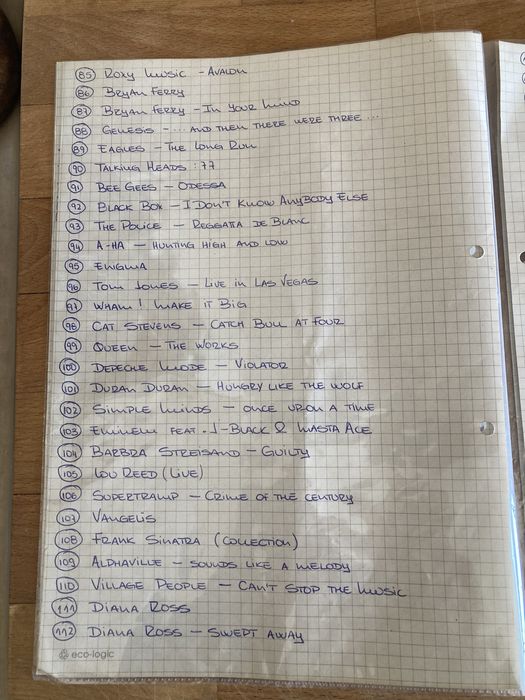 85 Roxy Music - Avalon
86 Bryan Ferry
87 Bryan Ferry - In Your Mind
88 Genesis - ... and then there were three ...
89 Eagles - The Long Run
90 Talking Heads : 77
91 Bee Gees - Odessa
92 Black Box - I Don't Know Anybody Else
93 The Police - Reggatta de Blanc
94 A-ha - Hunting High and Low
95 Enigma
96 Tom Jones - Live in Las Vegas
97 Wham! Make it Big
98 Cat Stevens - Catch Bull at Four
99 Queen - The Works
100 Depeche Mode - Violator
101 Duran Duran - Hungry like the Wolf
102 Simple Minds - Once upon a Time
103 Eminem feat. J-Black & Masta Ace
104 Barbra Streisand - Guilty
105 Lou Reed (Live)
106 Supertramp - Crime of the Century
107 Vangelis
108 Frank Sinatra (Collection)
109 Alphaville - Sounds like a Melody
110 Village People - Can't Stop the Music
111 Diana Ross
112 Diana Ross - Swept Away
eco-logic